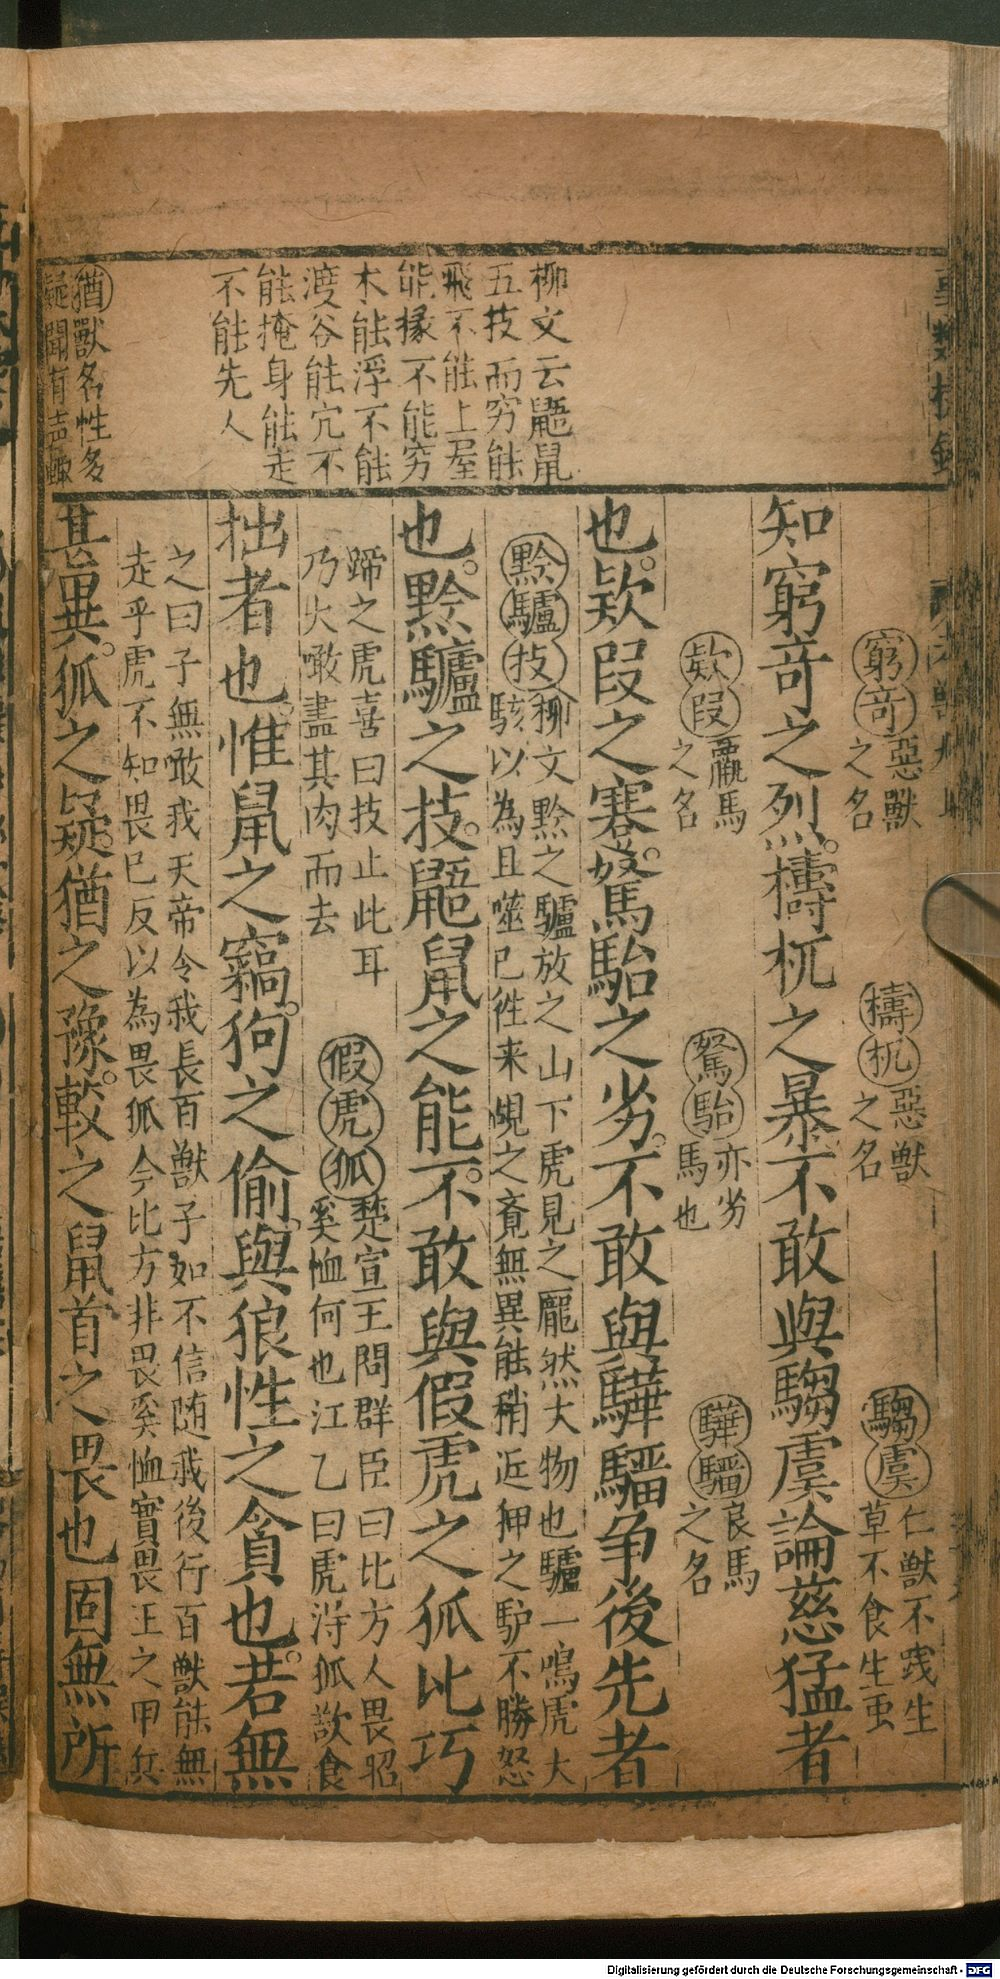 柳文云鼯鼠
五技而穷能
飛不能上屋
能掾不能穷
木能浮不能
渡谷能穴不
能掩身能走
不能先人
猶獸名性多
疑聞有声
窮竒惡獸之名
檮杌惡獸之名
騶虞仁獸不践生草不食生䖝
知窮竒之烈。檮杌之暴。不敢與騶虞論慈猛者
欵叚羸馬之名
駑駘亦劣馬也
驊騮良馬之名
也。欵叚之蹇。駑駘之劣。不敢與驊騮争後先者
黔驢技柳文黔之驢放之山下虎見之龐然大物也驢一鳴虎大
駭以為且噬已徃来視之竟無異能稍近狎之馿不勝怒
也。黔驢之技。鼯鼠之能。不敢與假虎之狐比巧
蹄之虎喜曰技止此耳
乃大㘚盡其肉而去
假虎狐楚宣王問群臣曰比方人畏昭
奚恤何也江乙曰虎淂狐欲食
拙者也。惟鼠之竊。狗之偷。與狼性之貪也。若無
之曰子無敢我天帝令我長百獸子如不信随我後行百獸能無
走乎虎不知畏已反以為畏狐今比方非畏奚恤實畏王之甲兵
甚異。狐之疑。猶之豫。較之鼠首之畏也固無所
Digitalisierung gefördert durch die Deutsche Forschungsgemeinschaft - DFG